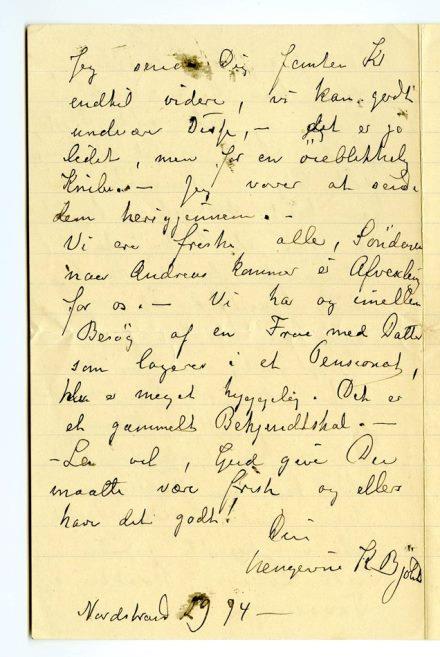 Jeg sender Dig femten Kr
endtil videre, vi kan godt
undvære Disse, – det er jo
lidet, men for en øieblikkelig
Knibe – Jeg vover at sende
dem herigjennem. –
Vi ere friske alle, Søndagen
naar Andreas kommer er Afvexling
for os. – Vi har og imellem
Besøg af en Frue med Datter
som logerer i et Pensionat,
hun e meget hyggelig. Det er
et gammelt Bekjendtskab. –
– Lev vel, Gud give Du
maatte være frisk og ellers
have det godt!
Din
hengivne K. Bjöl
Nordstrand 29 94 –